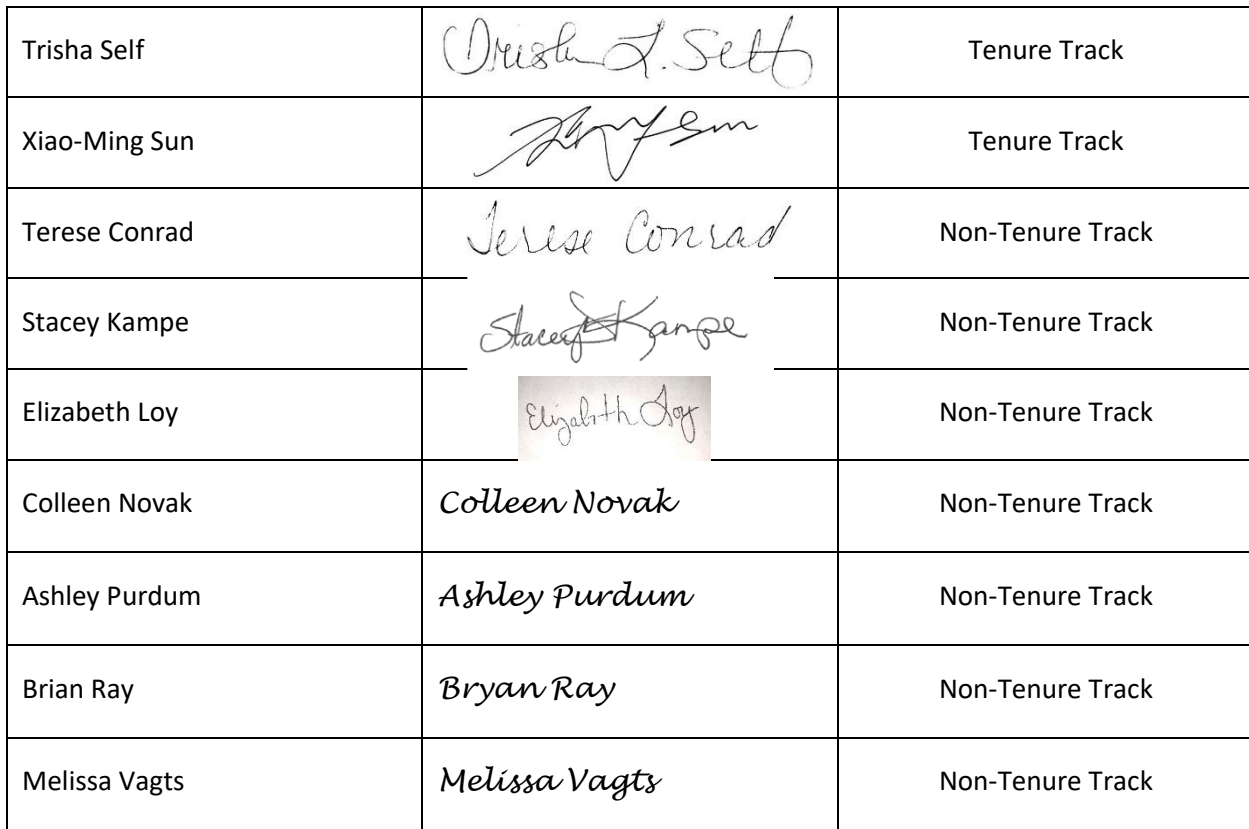 Trisha Self Trisha L. Self Tenure Track
Xiao-Ming Sun Sun Tenure Track
Terese Conrad Terese Conrad Non-Tenure Track
Stacey Kampe Stacey Kampe Non-Tenure Track
Elizabeth Loy Elizabeth Loy Non-Tenure Track
Colleen Novak Colleen Novak Non-Tenure Track
Ashley Purdum Ashley Purdum Non-Tenure Track
Brian Ray Bryan Ray Non-Tenure Track
Melissa Vagts Melissa Vagts Non-Tenure Track